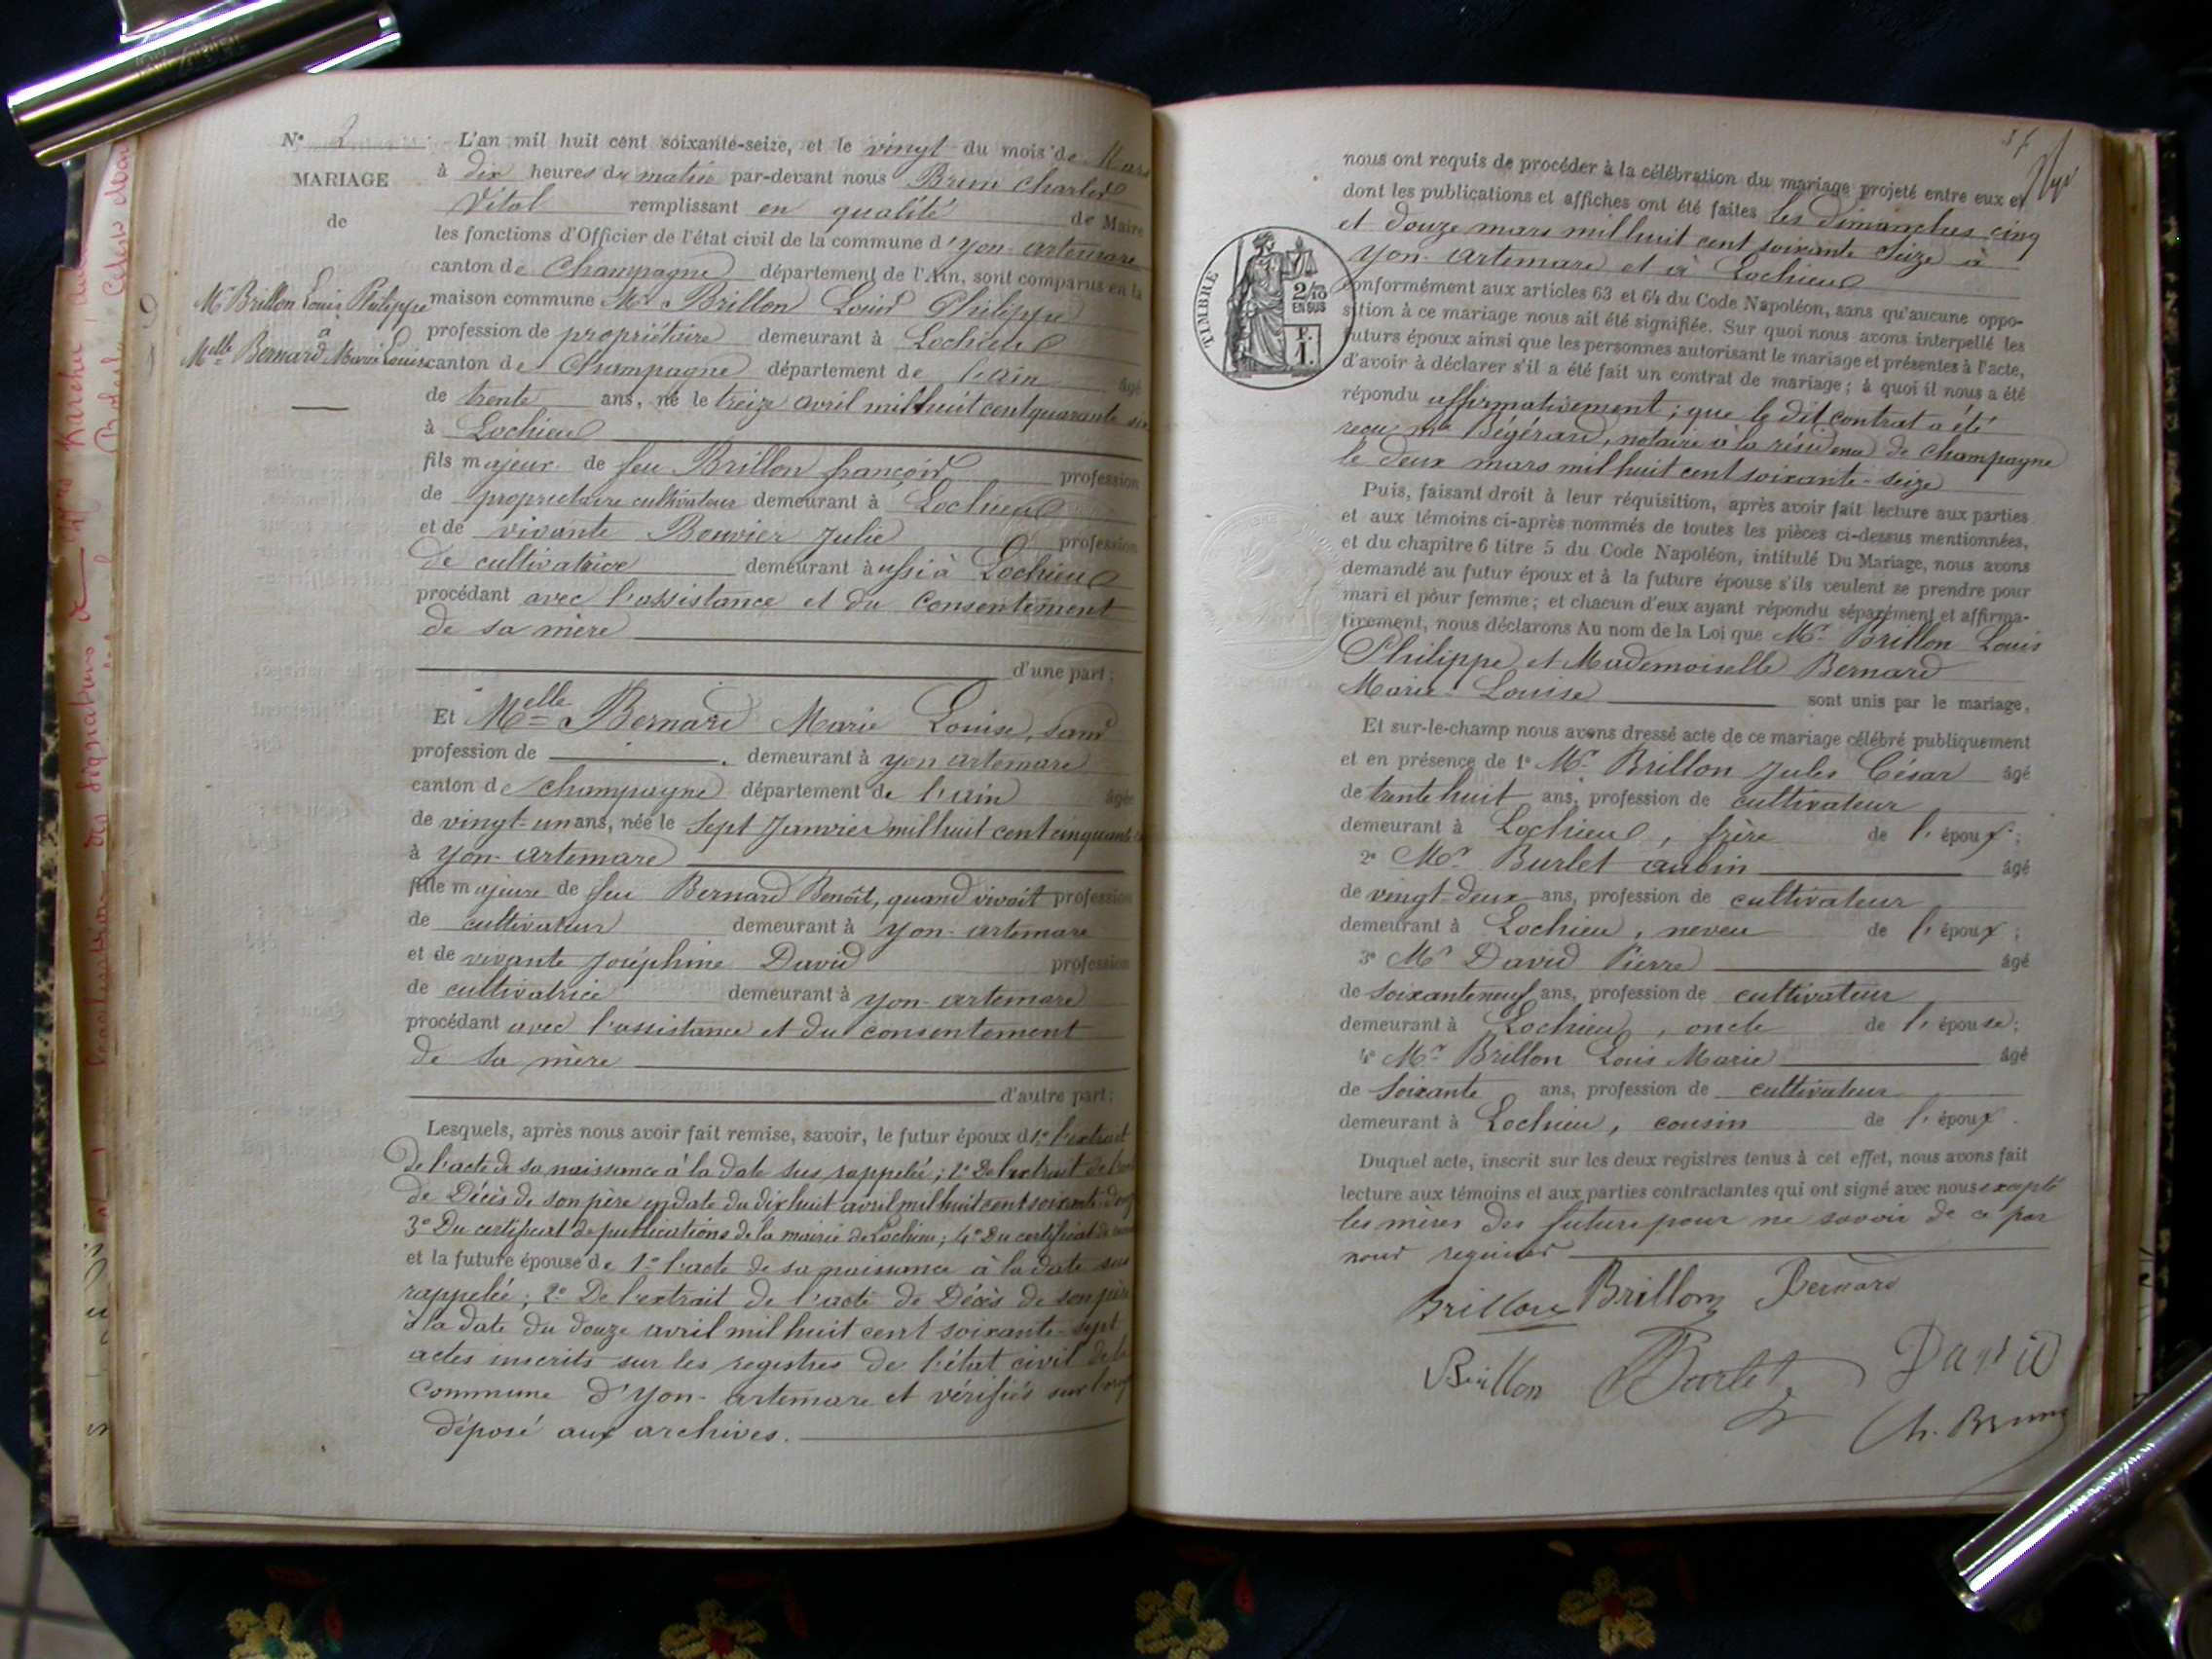 N° 2
MARIAGE
de
Mr Brillon Louis Philippe
à
Melle Bernard Marie Louise
L'an mil huit cent soixante-seize, et le vingt du mois de Mars
à dix heures du matin par-devant nous Brun Charles
Vital remplissant en qualité de Maire
les fonctions d'Officier de l'état civil de la commune d'Yon-artemare
canton de Champagne département de l'Ain, sont comparus en la
maison commune Mr Brillon Louis Philippe
profession de propriétaire demeurant à Lochieu
canton de Champagne département de l'ain âgé
de trente ans, né le treize avril mil huit cent quarante six
à Lochieu
fils majeur de feu Brillon françois profession
de propriétaire cultivateur demeurant à Lochieu
et de vivante Bouvier Julie profession
de cultivatrice demeurant aussi à Lochieu
procédant avec l'assistance et du consentement
de sa mère
d'une part;
Et Melle Bernard Marie Louise, sans
profession de demeurant à yon artemare
canton de champagne département de l'ain âgée
de vingt-un ans, née le sept Janvier mil huit cent cinquante
à yon-artemare
fille majeure de feu Bernard Benoît, quand vivait profession
de cultivateur demeurant à yon-artemare
et de vivante Joséphine David profession
de cultivatrice demeurant à yon-artemare
procédant avec l'assistance et du consentement
de sa mère
d'autre part;
Lesquels, après nous avoir fait remise, savoir, le futur époux d 1° l'extrait
De l'acte de sa naissance à la date sus rappelée; 2° De l'extrait de l'acte
de Décès de son père en date du dix huit avril mil huit cent soixante-douze
3° Du certificat de publications de la mairie de Lochieu; 4° Du certificat de
et la future épouse de 1° l'acte de sa naissance à la date sus
rappelée; 2° De l'extrait de l'acte de Décès de son père
à la date du douze avril mil huit cent soixante-sept
actes inscrits sur les registres de l'état civil de la
commune d'Yon-artemare et vérifiés sur
déposé aux archives.
nous ont requis de procéder à la célébration du mariage projeté entre eux et
dont les publications et affiches ont été faites les dimanches cinq
et douze mars mil huit cent soixante seize à
yon-artemare et à Lochieu
conformément aux articles 63 et 64 du Code Napoléon, sans qu'aucune oppo-
sition à ce mariage nous ait été signifiée. Sur quoi nous avons interpellé les
futurs époux ainsi que les personnes autorisant le mariage et présentes à l'acte,
d'avoir à déclarer s'il a été fait un contrat de mariage; à quoi il nous a été
répondu affirmativement; que le dit contrat a été
reçu me Bégérard, notaire à la résidence de champagne
le deux mars mil huit cent soixante-seize
TIMBRE
2/10
EN SUS
F.
1.
Puis, faisant droit à leur réquisition, après avoir fait lecture aux parties
et aux témoins ci-après nommés de toutes les pièces ci-dessus mentionnées,
et du chapitre 6 titre 5 du Code Napoléon, intitulé Du Mariage, nous avons
demandé au futur époux et à la future épouse s'ils veulent se prendre pour
mari et pour femme; et chacun d'eux ayant répondu séparément et affirma-
tivement, nous déclarons Au nom de la Loi que Mr Brillon Louis
Philippe et Mademoiselle Bernard
Marie-Louise sont unis par le mariage.
Et sur-le-champ nous avons dressé acte de ce mariage célébré publiquement
et en présence de 1° Mr Brillon Jules César âgé
de trente huit ans, profession de cultivateur
demeurant à Lochieu, frère de l'époux;
2° Mr Burlet aubin âgé
de vingt-deux ans, profession de cultivateur
demeurant à Lochieu, neveu de l'époux;
3° Mr David Pierre âgé
de soixante neuf ans, profession de cultivateur
demeurant à Lochieu, oncle de l'épouse;
4° Mr Brillon Louis Marie âgé
de soixante ans, profession de cultivateur
demeurant à Lochieu, cousin de l'époux.
Duquel acte, inscrit sur les deux registres tenus à cet effet, nous avons fait
lecture aux témoins et aux parties contractantes qui ont signé avec nous excepté
les mères des futurs pour ne savoir de ce par
nous requises
Brillon Brillon Bernard
Brillon Burlet David
Ch. Brun